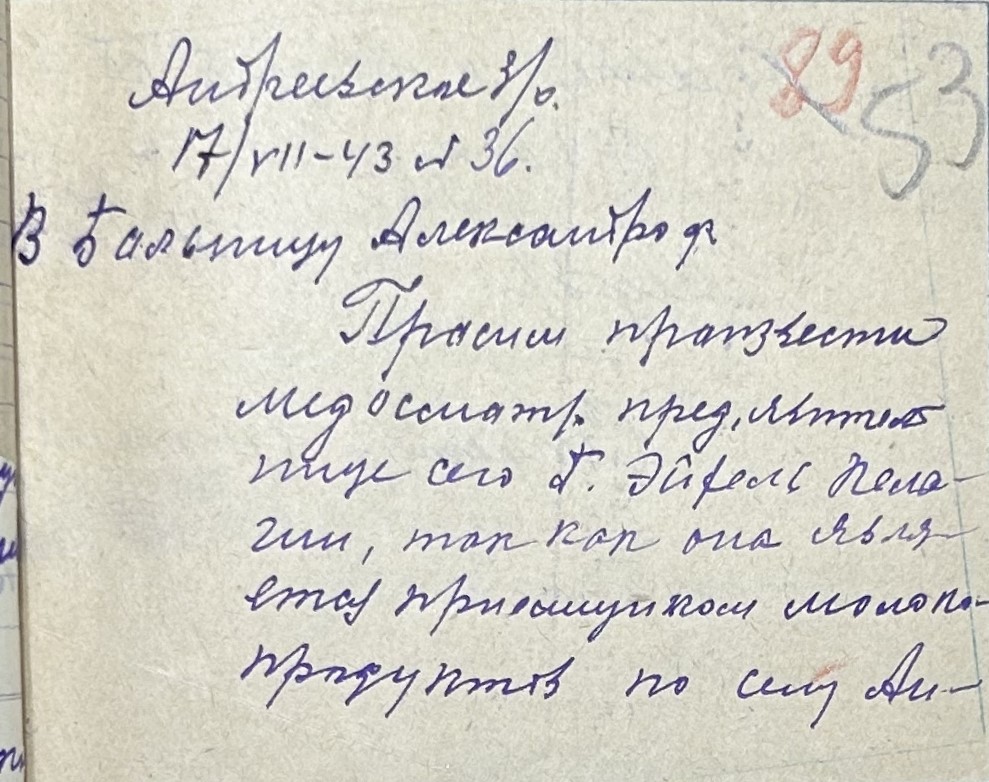 89 53
Андреевское з/о.
17/VII-43 № 36.
В Больницу Александров
Просим произвести
медосмотр. пред,явитель
нице сего т. Эйфель Пела-
гии, так как она явля-
ется приемщиком молоко-
продуктов по селу Ан-